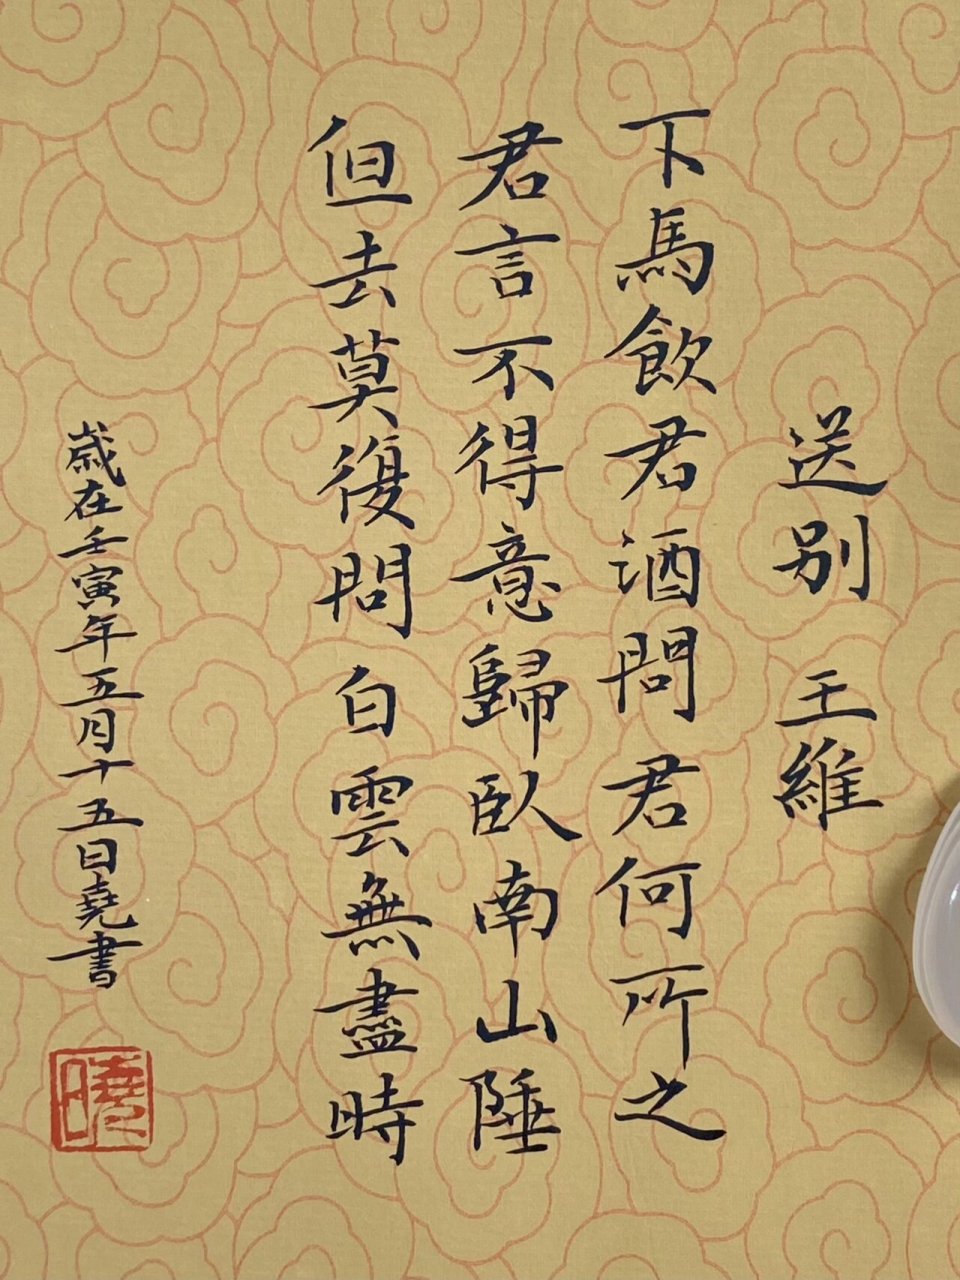 送別 王維
下馬飲君酒問君何所之
君言不得意歸臥南山陲
但去莫復問白雲無盡時
歲在壬寅年五月十五日堯書
曉